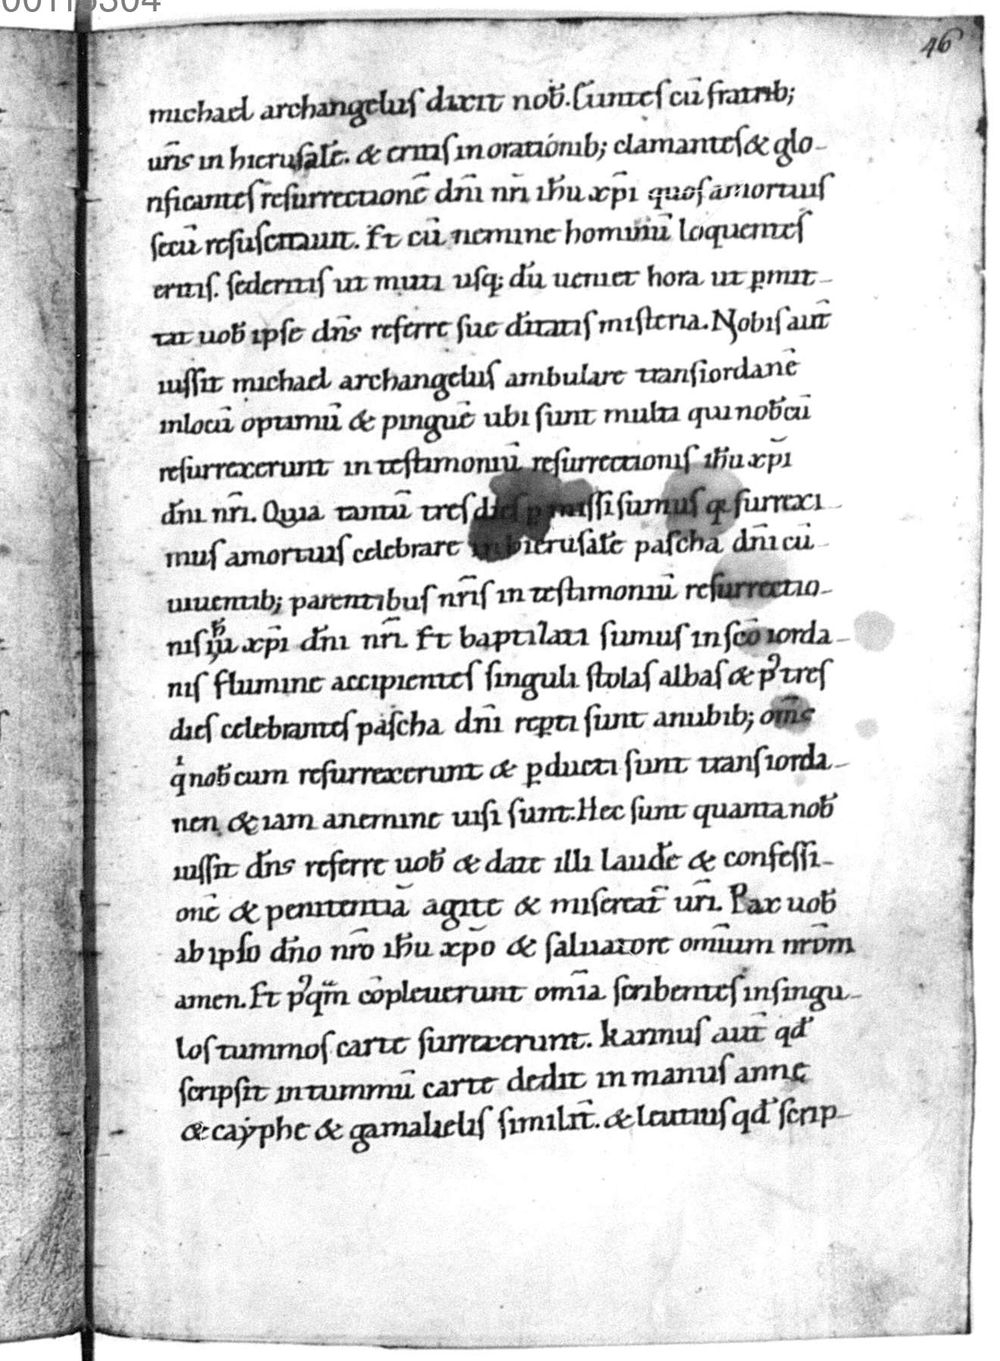 00110304
46
michael archangelus dixit nob̄. Euntes cū fratrib;
ur̄is in hierusalē. & eritis in orationib; clamantes & glo-
rificantes resurrectionē dn̄i nr̄i ih̄u xp̄i quos a mortuis
secū resuscitauit. Et cū nemine hominū loquentes
eritis. sedentis ut muti usq; dū ueniet hora ut ꝑmit-
tat uob̄ ipse dn̄s referre sue d̄itatis misteria. Nobis aut̄
iussit michael archangelus ambulare transiordanē
in locū optimū & pinguē ubi sunt multi qui nob̄cū
resurrexerunt in testimoniū resurrectionis ih̄u xp̄i
dn̄i nr̄i. Quia tantū tres dies ꝑmissi sumus q surrexi
mus a mortuis celebrare in hierusalē pascha dn̄i cū
uiuentib; parentibus nr̄is in testimoniū resurrectio-
nis ih̄u xp̄i dn̄i nr̄i. Et baptizati sumus in sc̄o iorda-
nis flumine accipientes singuli stolas albas & p᾽ tres
dies celebrantes pascha dn̄i repti sunt a nubib; om̄s
q nob̄cum resurrexerunt & ꝑducti sunt transiorda-
nen & iam a nemine uisi sunt. Hec sunt quanta nob̄
iussit dn̄s referre uob̄ & date illi laudē & confessi-
onē & penitentiā agite & misereat̄ ur̄i. Pax uob̄
ab ipso dn̄o nr̄o ih̄u xp̄o & saluatore om̄ium nr̄om
amen. Et p᾽qm̄ cōpleuerunt om̄ia scribentes in singu-
los tummos carte surrexerunt. karinus aut̄ qd̄
scripsit in tummū carte dedit in manus annę
& cayphe & gamalielis similit̄. & leutius qd̄ scrip-